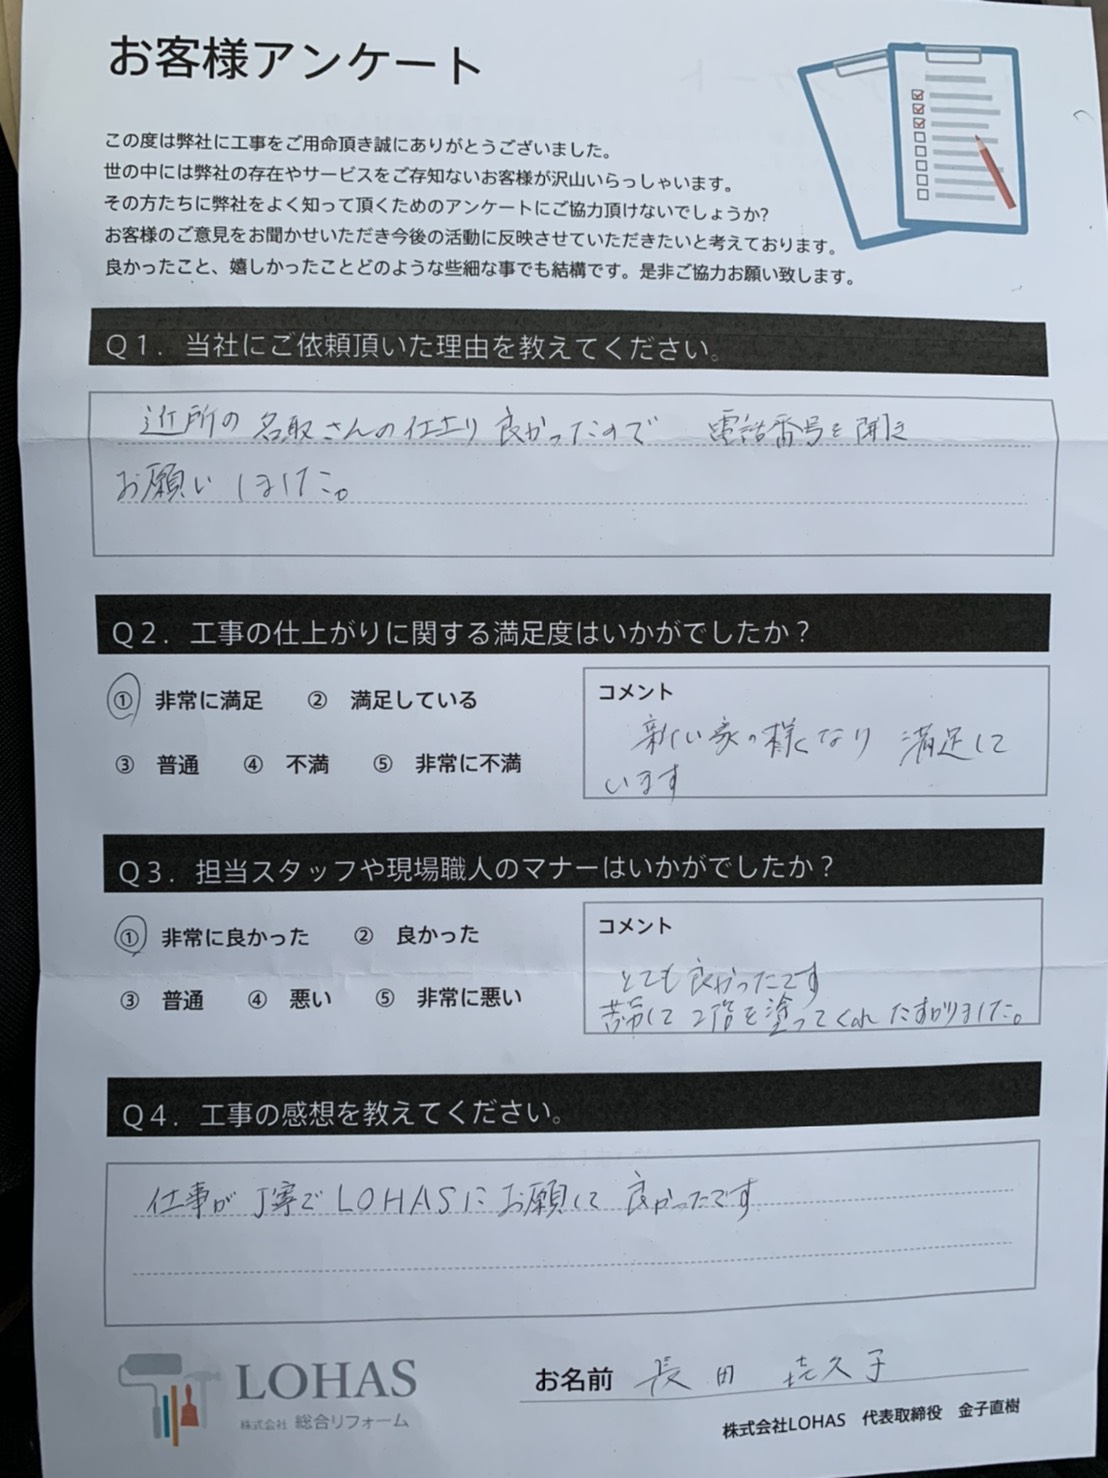 お客様アンケート
この度は弊社に工事をご用命頂き誠にありがとうございました。
世の中には弊社の存在やサービスをご存知ないお客様が沢山いらっしゃいます。
その方たちに弊社をよく知って頂くためのアンケートにご協力頂けないでしょうか?
お客様のご意見をお聞かせいただき今後の活動に反映させていただきたいと考えております。
良かったこと、嬉しかったことどのような些細な事でも結構です。是非ご協力お願い致します。
Q1. 当社にご依頼頂いた理由を教えてください。
近所の名取さんの仕上り良かったので 電話番号を聞き
お願いしました。
Q2. 工事の仕上がりに関する満足度はいかがでしたか？
① 非常に満足 ② 満足している
③ 普通 ④ 不満 ⑤ 非常に不満
コメント
新しい家の様になり 満足して
います
Q3. 担当スタッフや現場職人のマナーはいかがでしたか？
① 非常に良かった ② 良かった
③ 普通 ④ 悪い ⑤ 非常に悪い
コメント
とても良かったです
苦労して2階を塗ってくれ たすかりました。
Q4. 工事の感想を教えてください。
仕事が丁寧でLOHASにお願いして 良かったです
LOHAS
株式会社 総合リフォーム
お名前 長田 喜久子
株式会社LOHAS 代表取締役 金子直樹